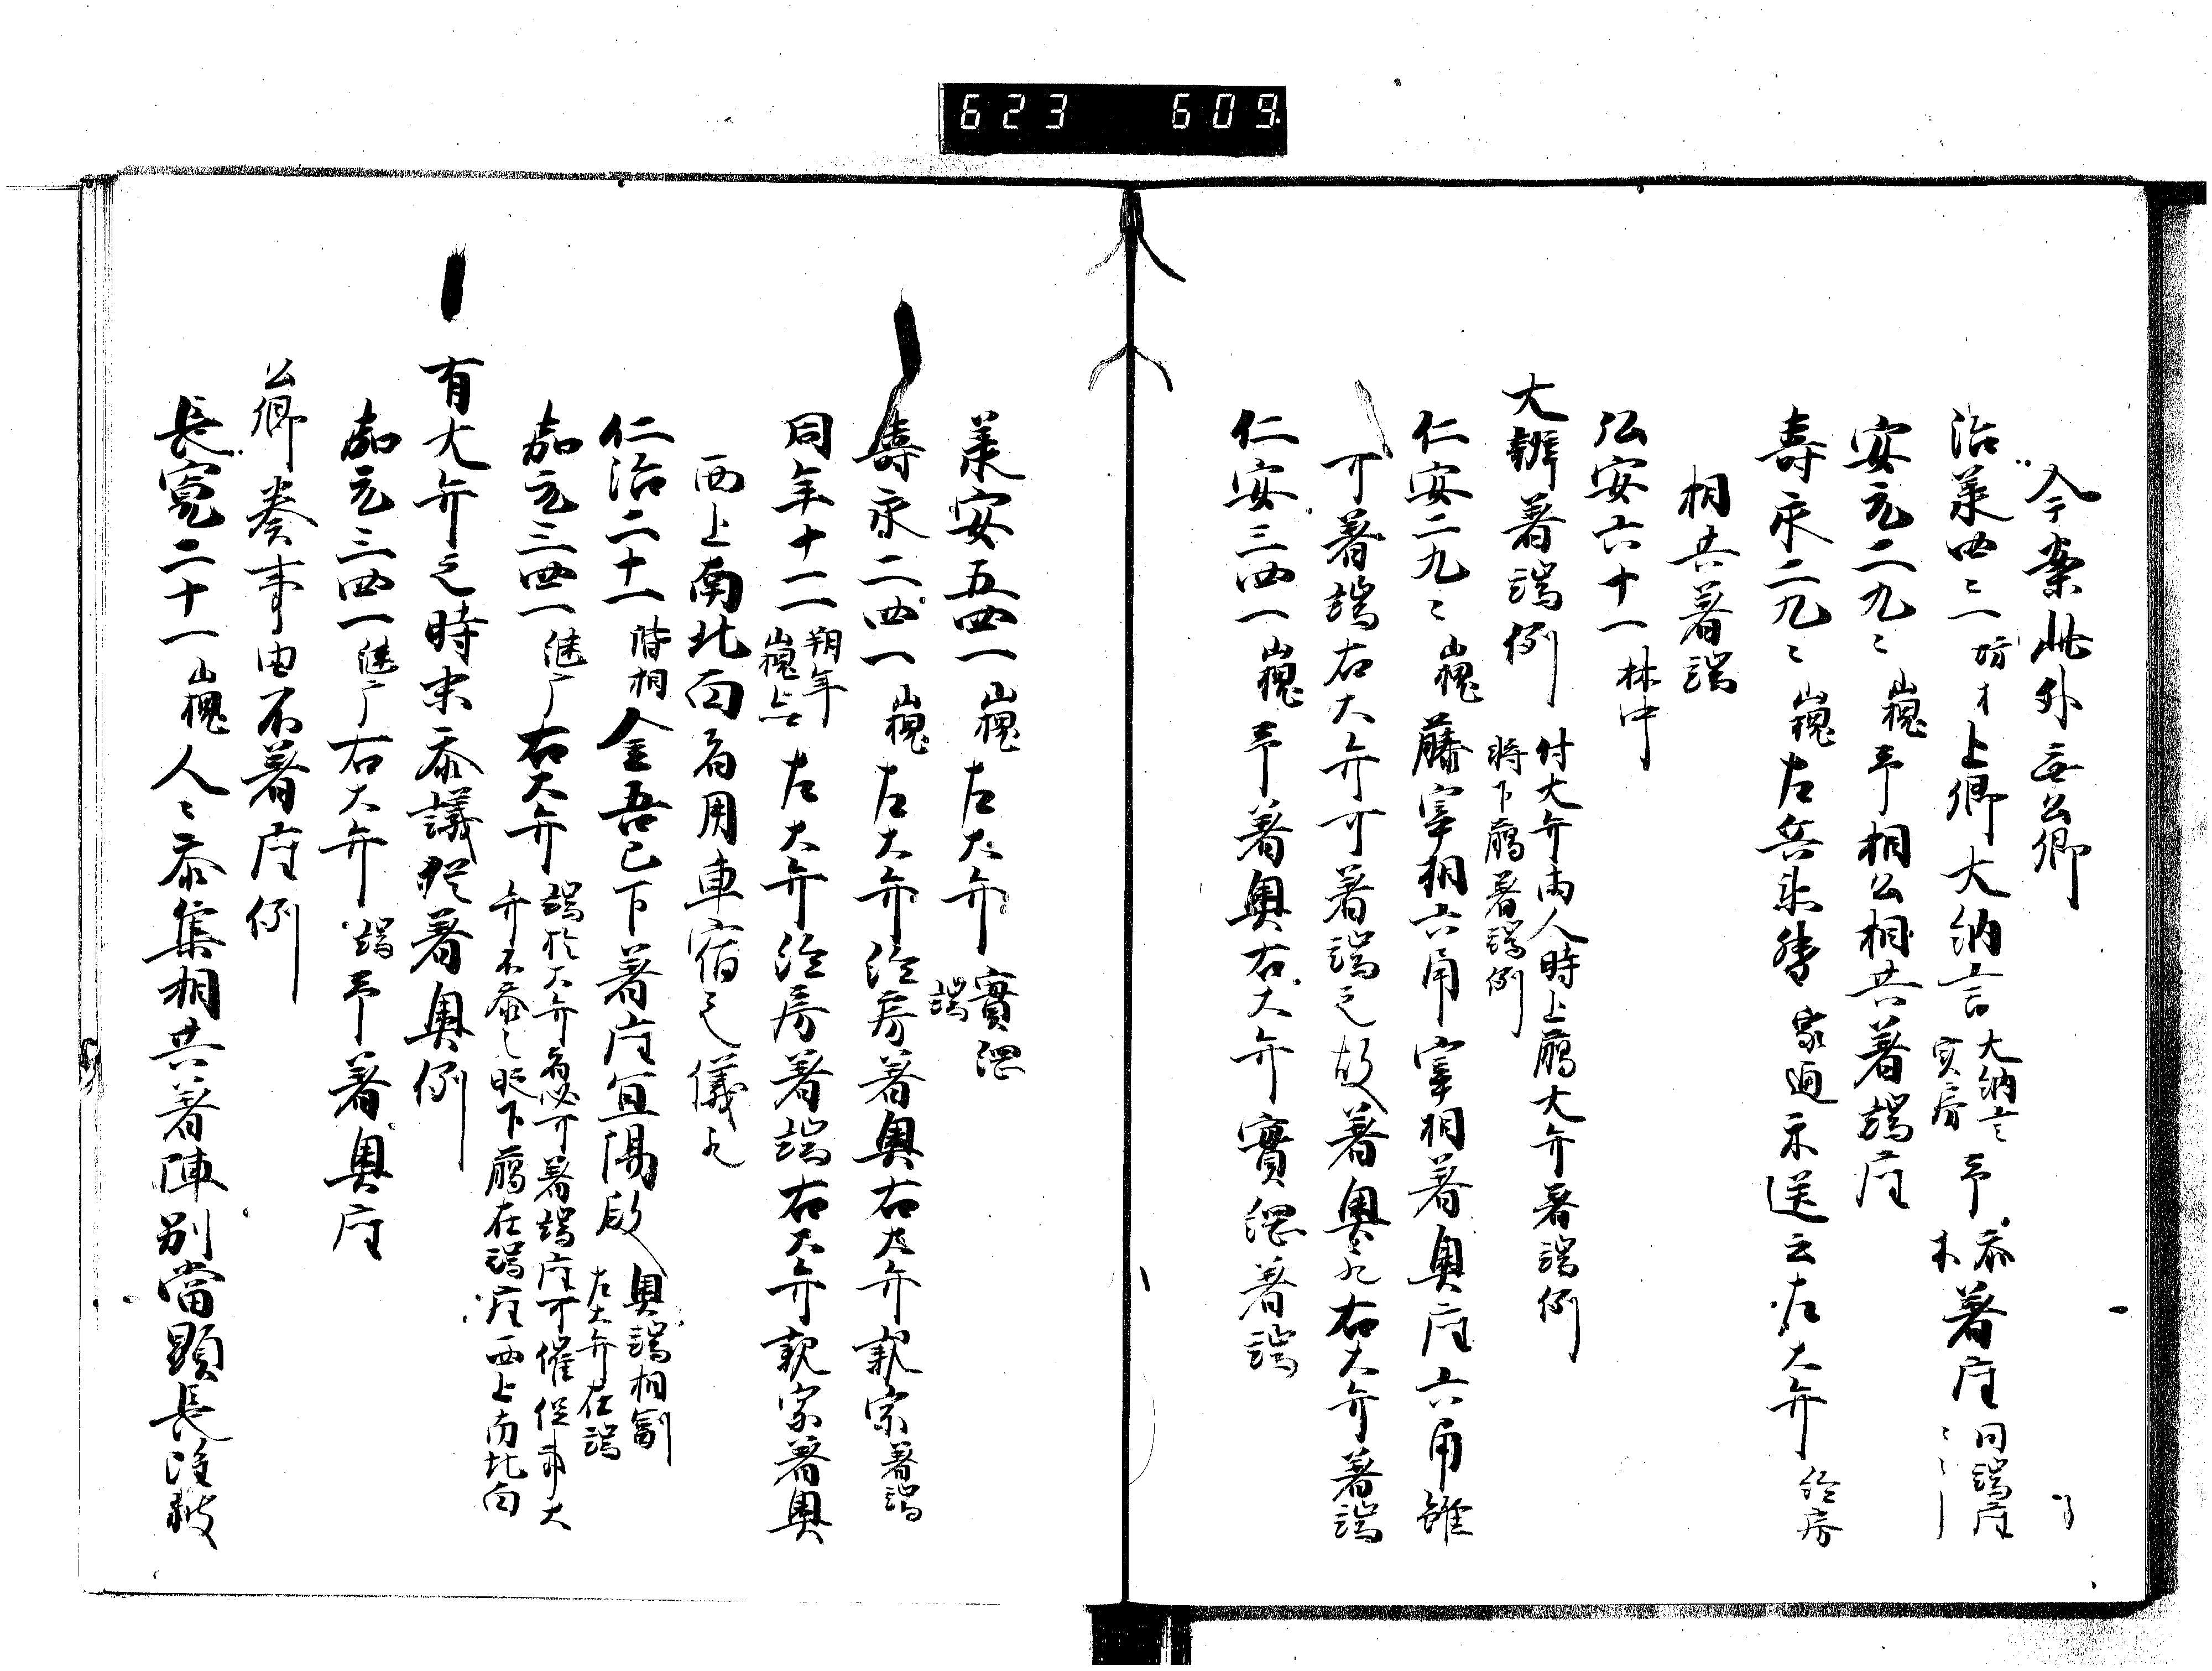 623 609
今案此外無公卿
治承四二一 坊 上卿大納言 大納言実房 予 参木 著座 同端座
安元二九々 山槐 予相公相共著端座
壽永二九々 山槐 左兵衛督 家通 示送云左大弁 経房
相共著端
弘安六十一 林中
大辨著端例 付大弁両人時上臈大弁著端例 時下臈著端例
仁安二九々 山槐 藤宰相六角宰相著奥座六角雖
可著端右大弁可著端之故著奥也右大弁著端
仁安三四一 山槐 予著奥右大弁實綱著端
承安五四一 山槐 左大弁 實綱 端
壽永二四一 山槐 左大弁経房著奥右大弁親宗 著端
同年十二一 朔年 山槐 左大弁経房著端右大弁親宗著奥
西上南北面有用車宿之儀也
仁治二十一 階相 金吾已下著座宜陽殿 奥端相副 左大弁在端
嘉元三四一 右大弁 端於大弁者必可著端座可催促事大弁不参之時下臈在端座西上南北面
有大弁之時末参議猶著奥例
嘉元三四一 右大弁 端 予著奥座
公卿奏事由不著座例
長寛二十一 山槐 人々参集相共著陣別當顕長後被